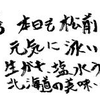 本日も松前
元気に泳い
生がき 塩水う
北海道の美味